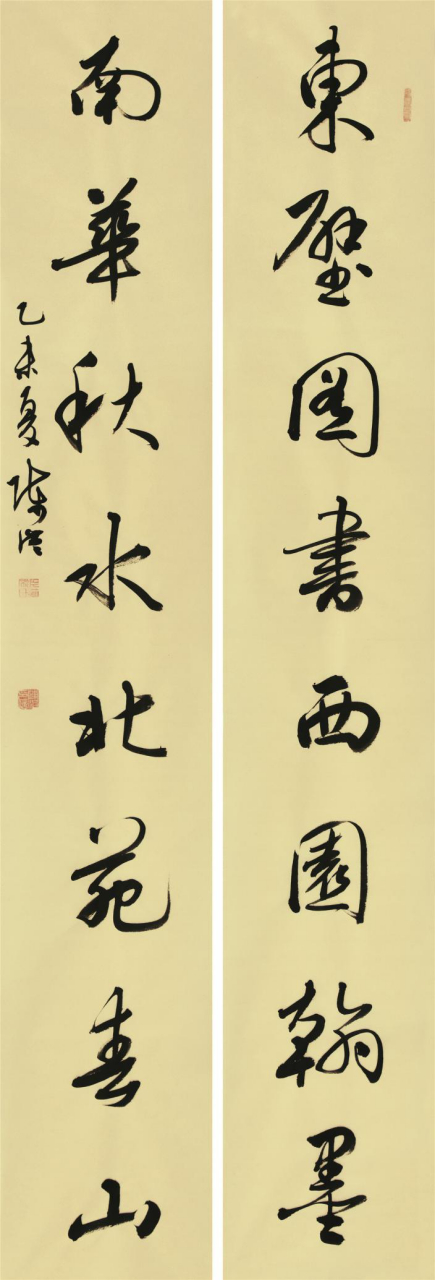 東壁圖書西園翰墨
南華秋水北苑春山
乙未夏陳浩